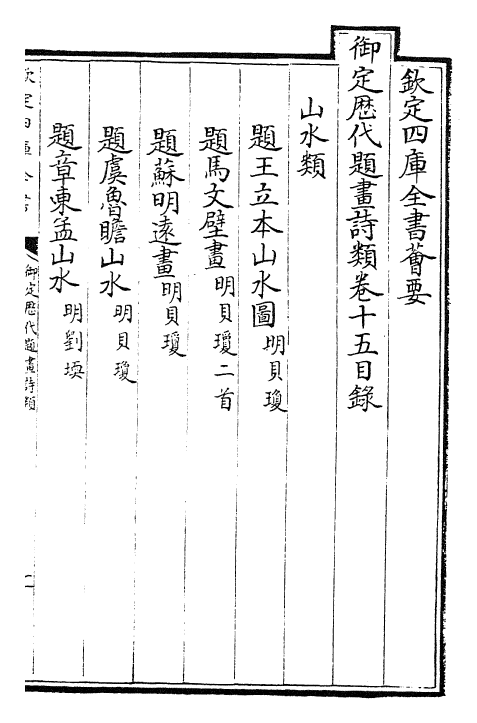 欽定四庫全書薈要
御定歴代題畫詩類卷十五目錄
山水類
題王立本山水圖 明貝瓊
題馬文壁畫 明貝瓊二首
題蘇明遠畫 明貝瓊
題虞魯瞻山水 明貝瓊
題章東孟山水 明劉㙋
欽定四庫全書
御定歴代題畫詩類
一